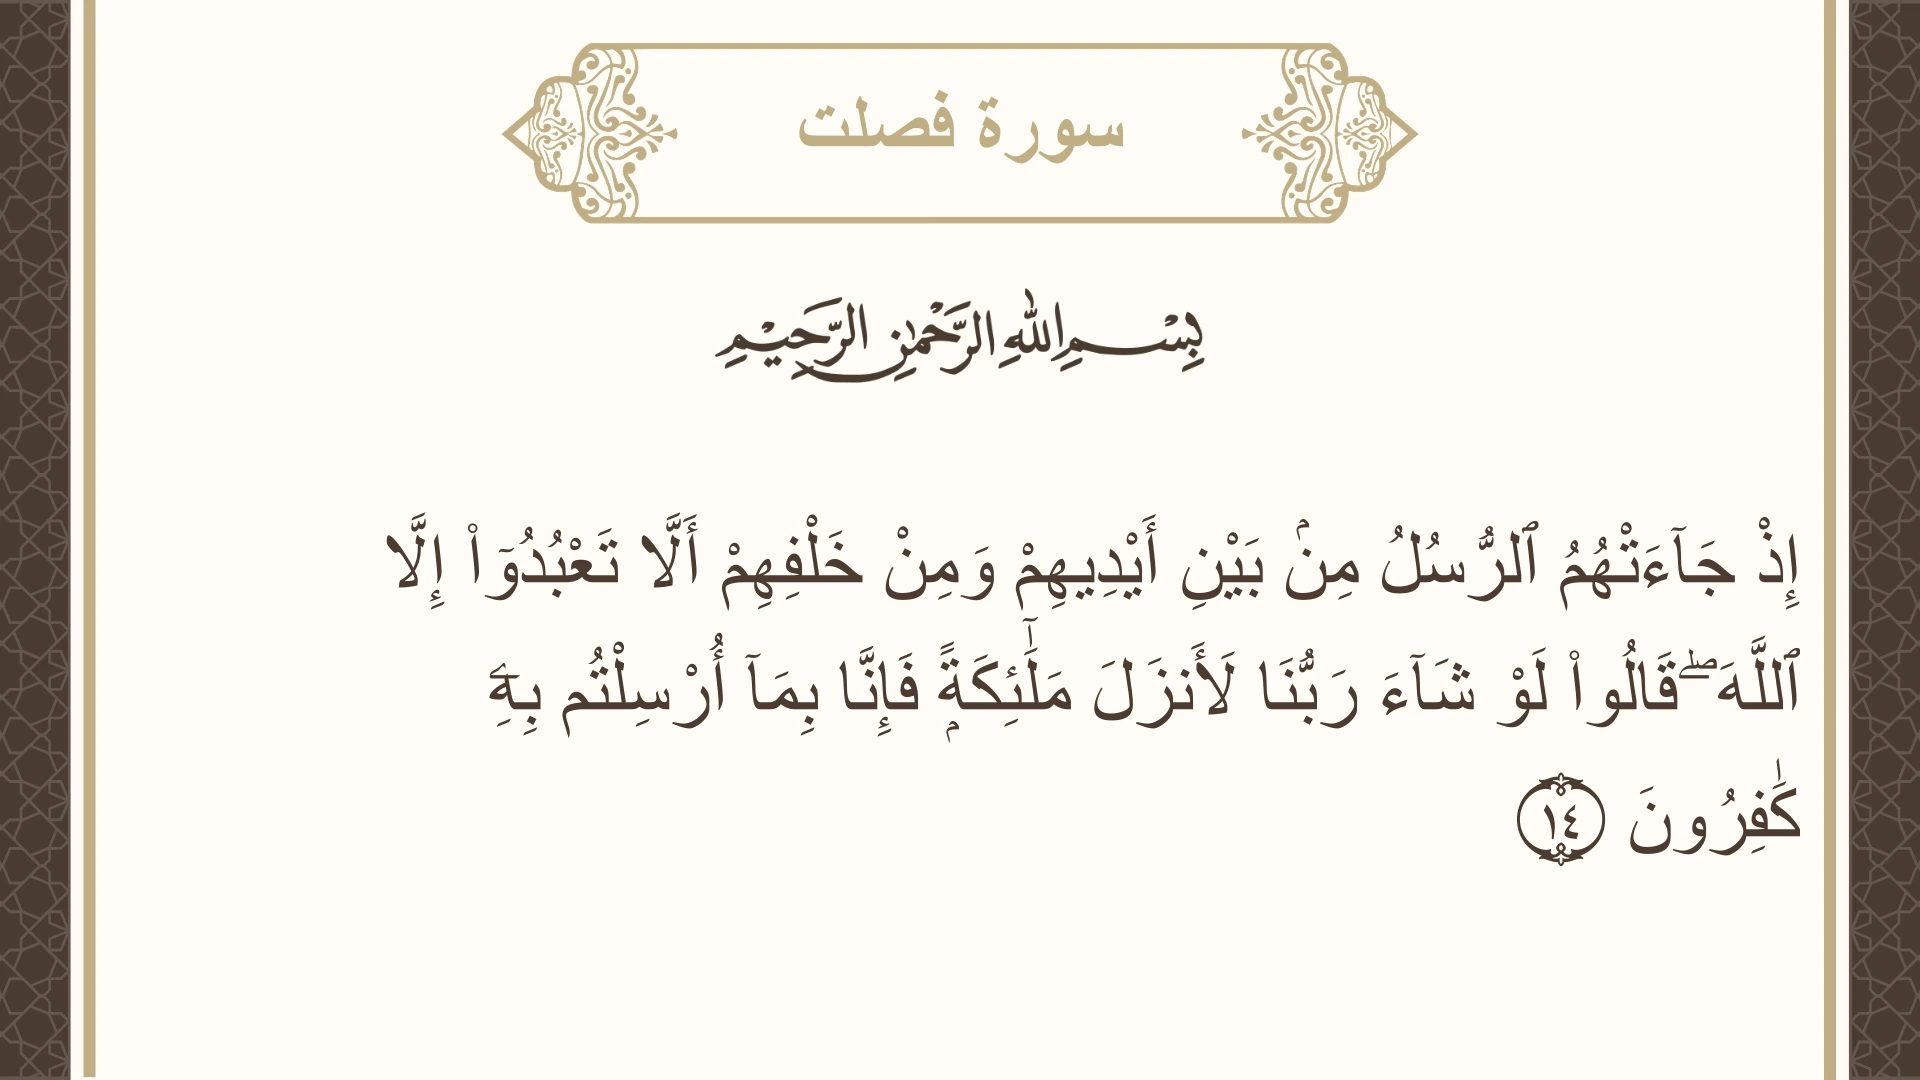 سورة فصلت
بِسْمِ اللهِ الرَّحْمٰنِ الرَّحِيْمِ
إِذْ جَآءَتْهُمُ ٱلرُّسُلُ مِنۢ بَيْنِ أَيْدِيهِمْ وَمِنْ خَلْفِهِمْ أَلَّا تَعْبُدُوٓا۟ إِلَّا
ٱللَّهَ ۖ قَالُوا۟ لَوْ شَآءَ رَبُّنَا لَأَنزَلَ مَلَٰٓئِكَةًۭ فَإِنَّا بِمَآ أُرْسِلْتُم بِهِۦٓ
كَٰفِرُونَ ١٤